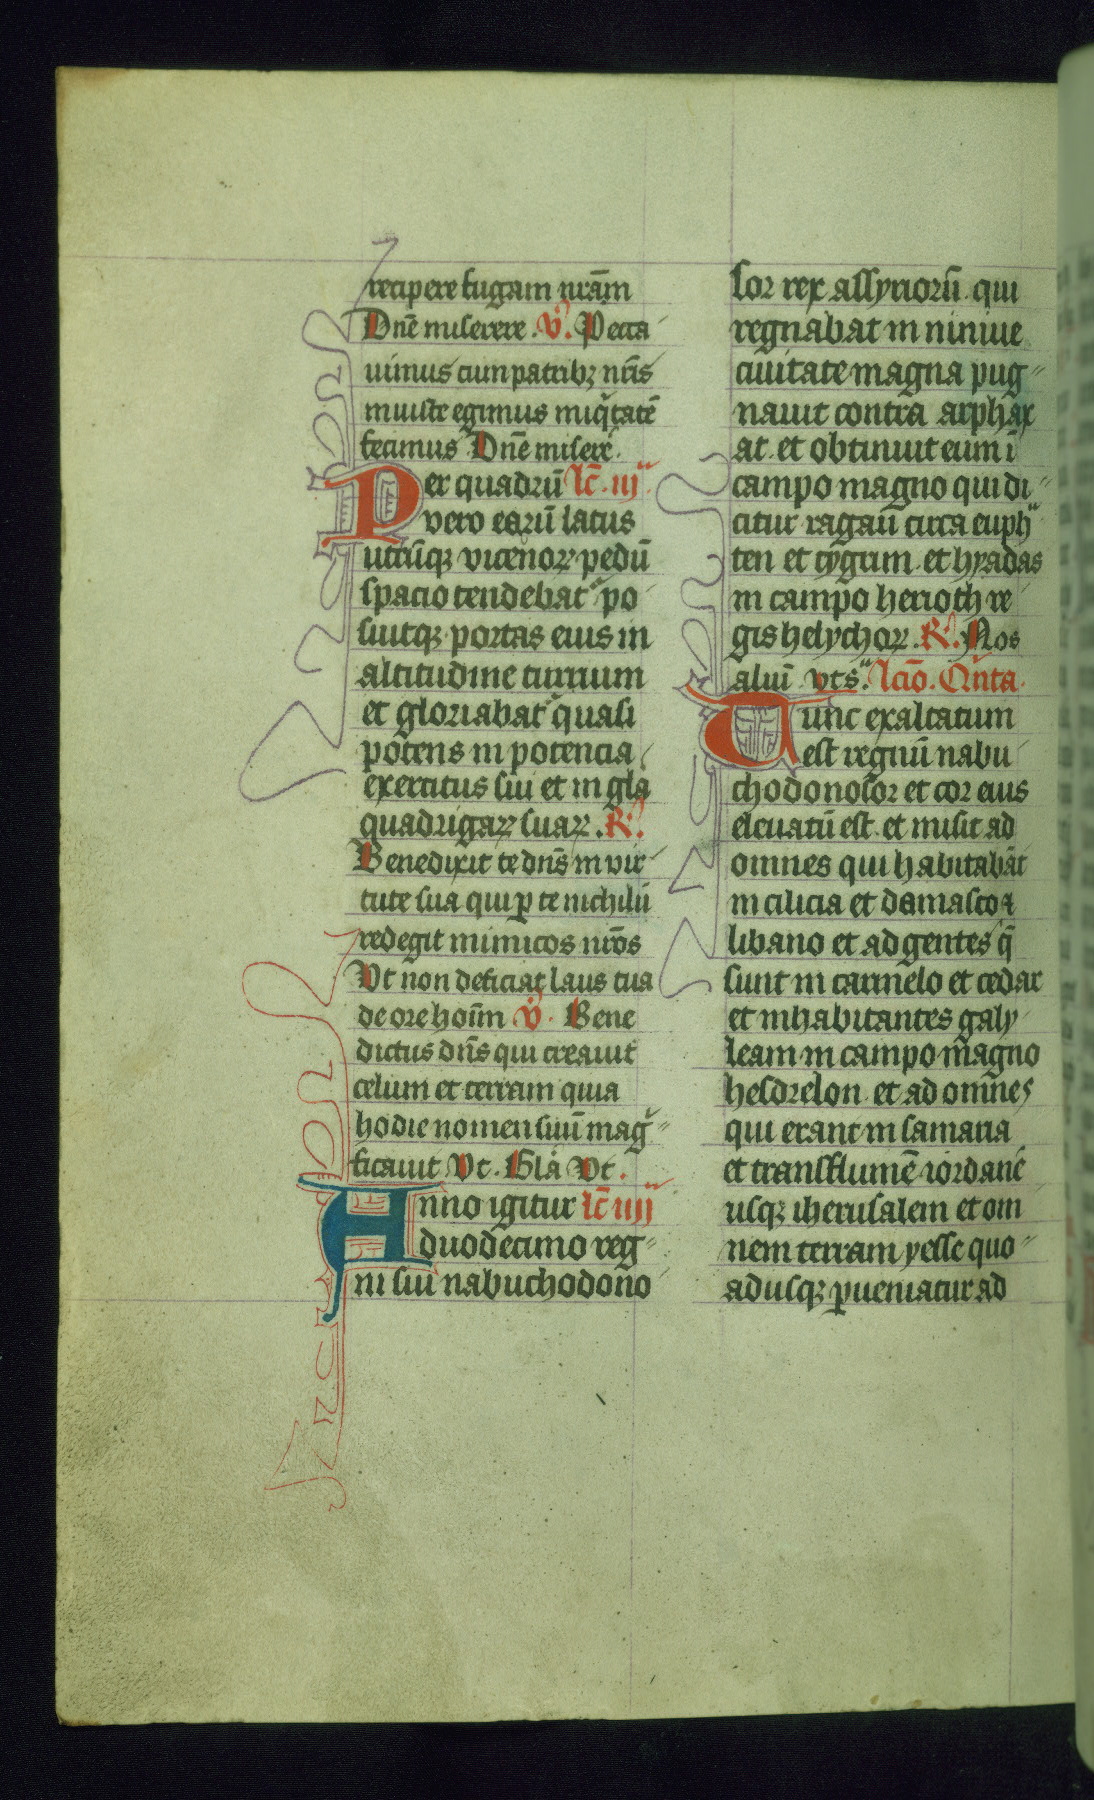 recipere fugam nr̄am
Dn̄e miserere. v̄. Pecca
uimus cum patribꝫ nr̄is
iniuste egimus iniq̄tatē
fecimus Dn̄e miserē.
Per quadrū lc̄. iij
vero earū latus
utrūqꝫ vicenoꝝ pedū
spacio tendebat᷑ po
suitqꝫ portas eius in
altitudine turrium
et gloriabat᷑ quasi
potens in potencia
exercitus sui et in gla
quadrigaꝝ suaꝝ. R̄.
Benedixit te dn̄s in vir
tute sua qui ꝑ te nichilū
redegit inimicos nr̄os
Vt non deficiat laus tua
de ore hoīm v̄. Bene
dictus dn̄s qui creauit
celium et terram quia
hodie nomen suū mag̓
ficauit Vt. Gla Vt.
Anno igitur lc̄ iiij
duodecimo reg
ni sui nabuchodono
sor rex assyriorū. qui
regnabat in niniue
ciuitate magna pug
nauit contra arphax
at. et obtinuit eum ī
campo magno qui di
citur ragau circa euph
ten et tygrim. et hyadas
in campo herioth re
gis helychoꝝ. R̄. Nos
aliū vts. lcīo. Qn̄ta.
Tunc exaltatum
est regnū nabu
chodonosor et cor eius
eleuatū est. et misit ad
omnes qui habitabāt
in cilicia et damasco ⁊
libano et ad gentes q̄
sunt in carmelo et cedar
et inhabitantes galy
leam in campo magno
hesdrelon. et ad omnes
qui erant in samaria
et transflumē iordanē
usqꝫ iherusalem et om
nem terram yesse quo
adusqꝫ ꝑueniatur ad